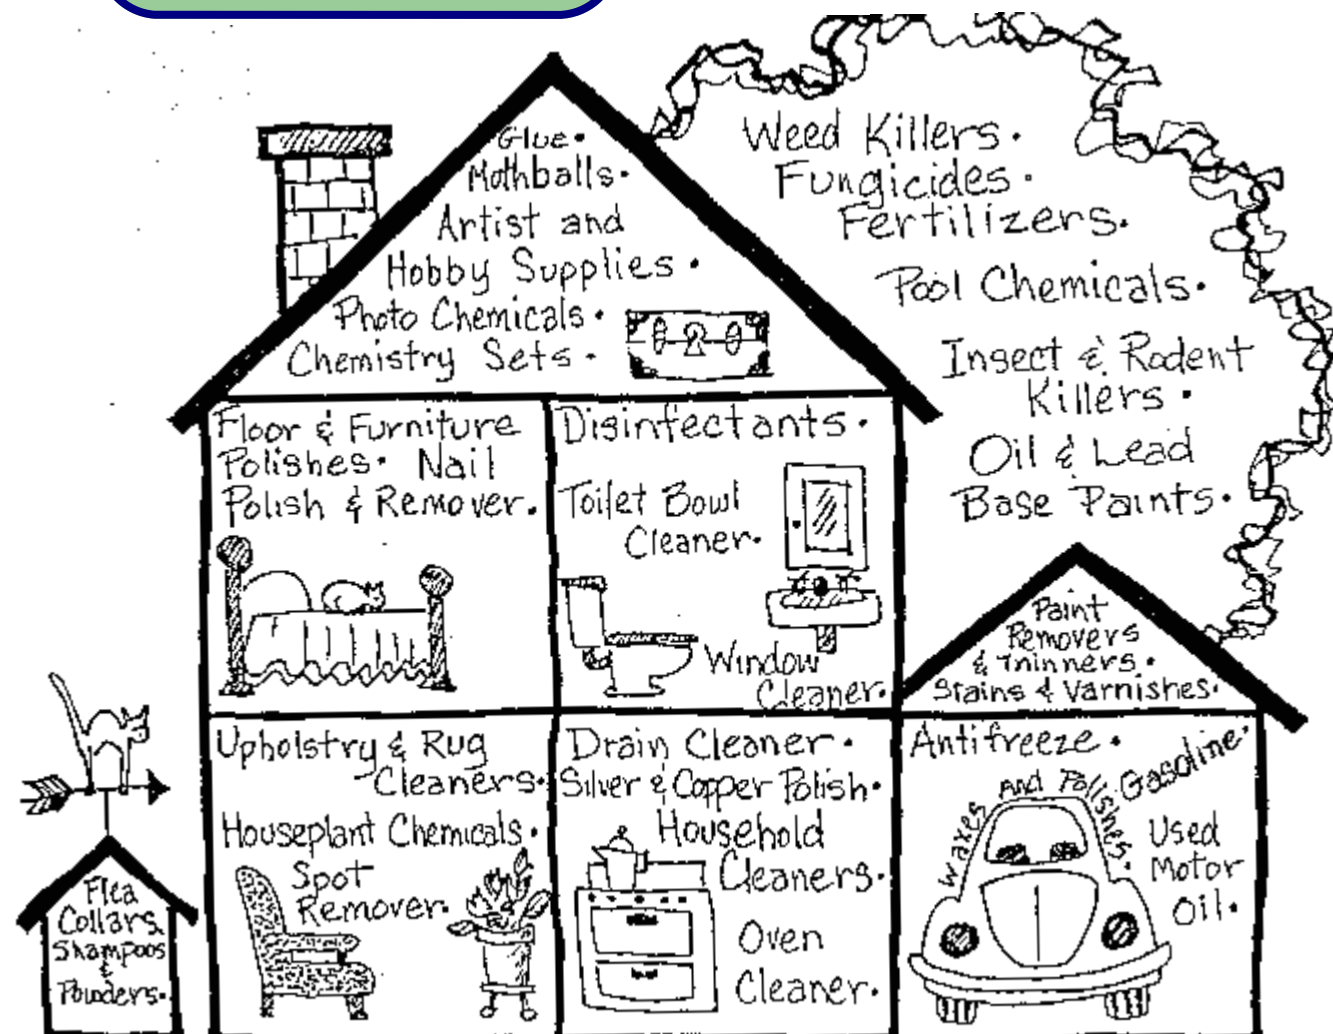 Glue.
Mothballs.
Artist and
Hobby Supplies.
Photo Chemicals.
Chemistry Sets.
Weed Killers.
Fungicides.
Fertilizers.
Pool Chemicals.
Insect & Rodent
Killers.
Oil & Lead
Base Paints.
Floor & Furniture
Polishes. Nail
Polish & Remover.
Disinfectants.
Toilet Bowl
Cleaner.
Window
Cleaner.
Paint
Removers
& Thinners.
Stains & Varnishes.
Upholstry & Rug
Cleaners.
Houseplant Chemicals.
Spot
Remover.
Drain Cleaner.
Silver & Copper Polish.
Household
Cleaners.
Oven
Cleaner.
Antifreeze.
Gasoline.
Waxes And Polishes.
Used
Motor
Oil.
Flea
Collars
Shampoos
&
Powders.